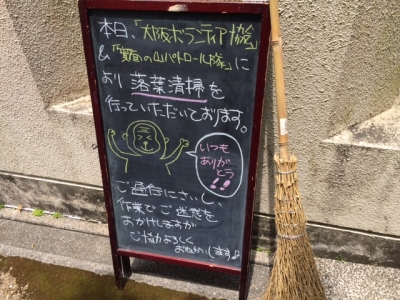 本日、「大阪ボランティア協会」
&「賢者の山パトロール隊」に
より 落葉清掃を
行っていただいております。
いつも
ありが
とう!!
ご通行にさいし、
作業でご迷惑を
おかけしますが
ご協力よろしく
おねがいします♪